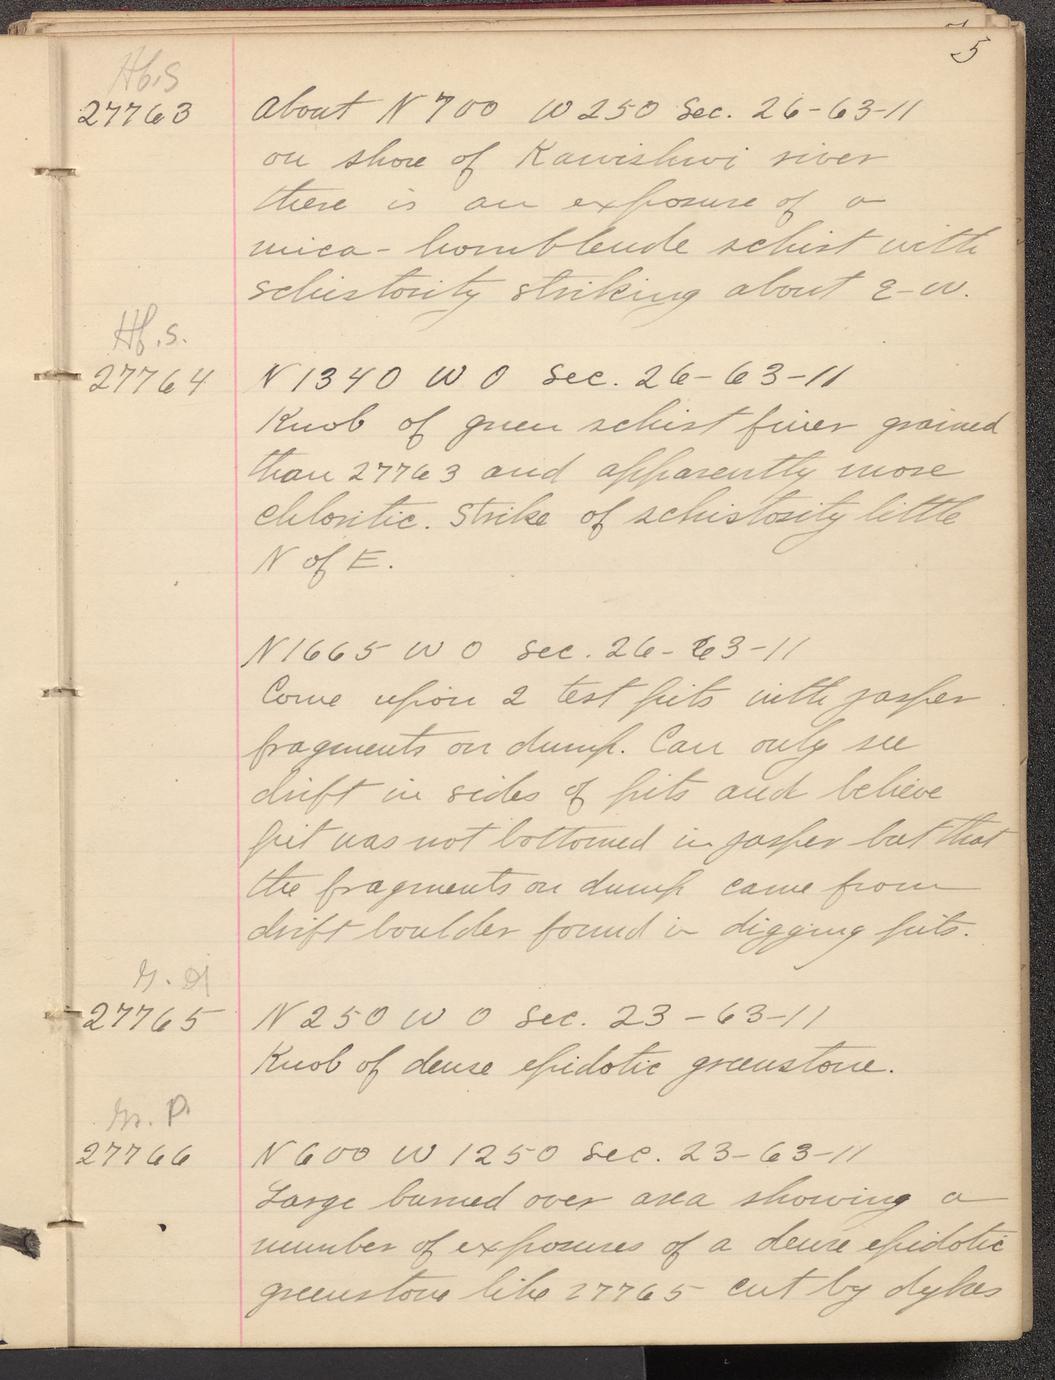 5
Hb.S
27763 About N 700 W 250 Sec. 26-63-11
on shore of Kawishwi river
there is an exposure of a
mica-hornblende schist with
schistosity striking about E-W.
Hb.S.
27764 N 1340 W 0 Sec. 26-63-11
Knob of green schist finer grained
than 27763 and apparently more
chloritic. Strike of schistosity little
N of E.
N 1665 W 0 Sec. 26-63-11
Come upon 2 test pits with jasper
fragments on dump. Can only see
drift in sides of pits and believe
pit was not bottomed in jasper but that
the fragments on dump came from
drift boulder found in digging pits.
27765 N 250 W 0 Sec. 23-63-11
Knob of dense epidotic greenstone.
27766 N 600 W 1250 Sec. 23-63-11
Large burned over area showing a
number of exposures of a dense epidotic
greenstone like 27765 cut by dykes